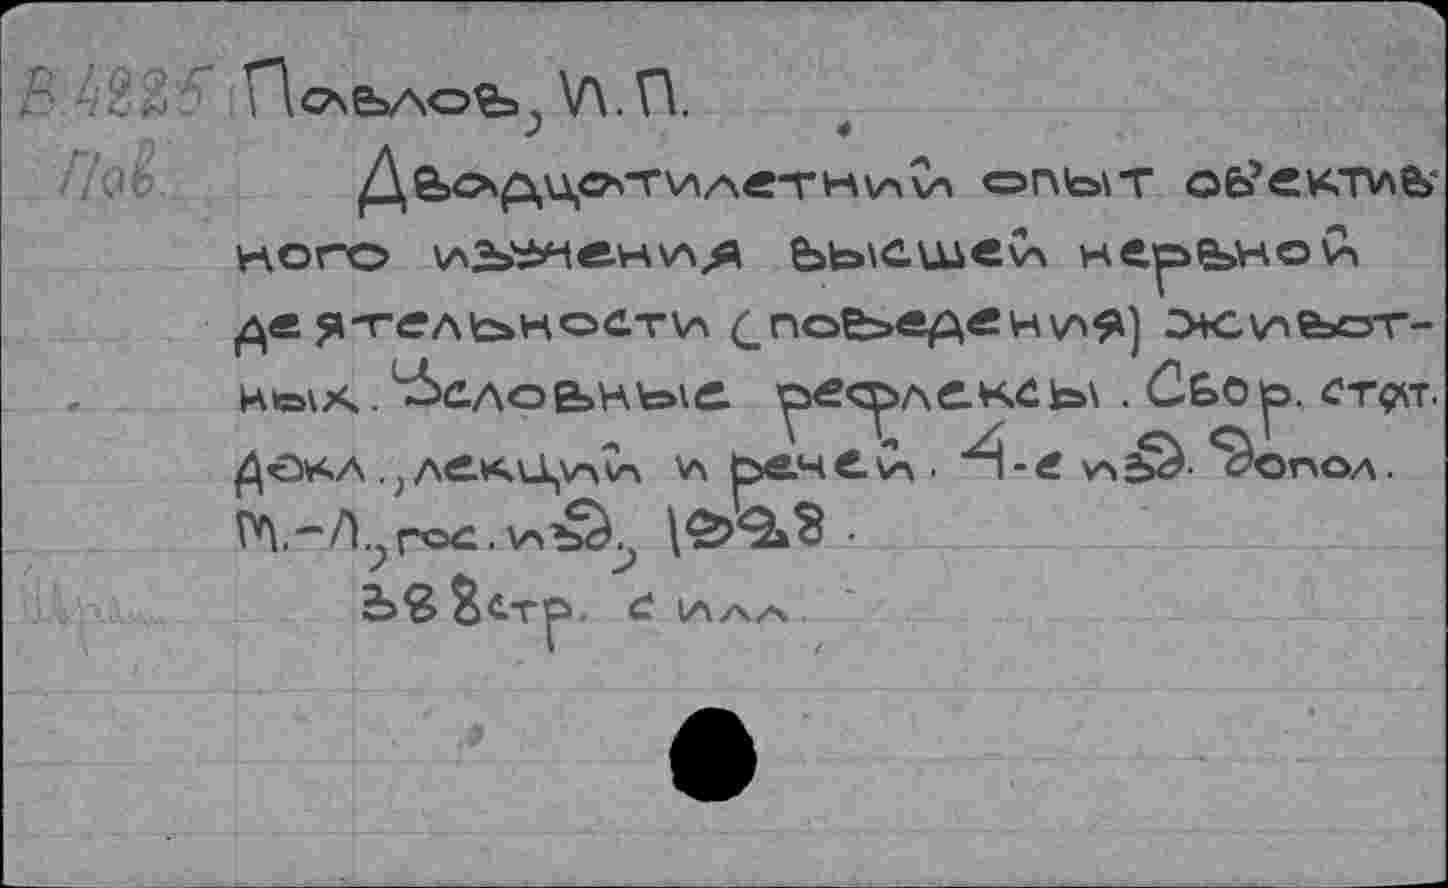 В4225 Павлов, И.П.
Пав. Двадцатилетний опыт об'ектив-
ного изучения высшей нервной
деятельности (поведения) живот-
ных. Условные рефлексы. Сбор. стат.
докл., лекций и речей. 4-е изд. допол.
М.-Л., гос. изд., 1928.
388 стр. с илл.